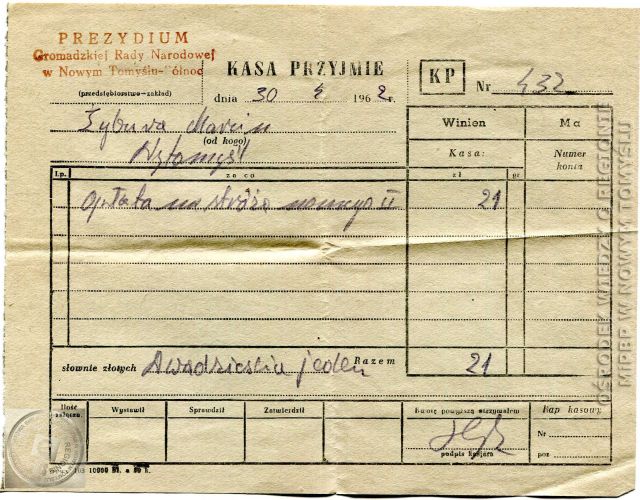 PREZYDIUM
Gromadzkiej Rady Narodowej
w Nowym Tomyślu-
(przedsiębiorstwo-zakład)
KASA PRZYJMIE
KP
Nr 432
dnia 30 4 1962 r.
Marcin
(od kogo)
Winien
Ma
Kasa:
Numer konta
zł
gr
L.p.
za co
Opłata na stróża nocnego II
21
słownie złotych Dwadzieścia jeden
Razem
21
Ilość załączn.
Wystawił
Sprawdził
Zatwierdził
Kwotę powyższą otrzymałem
podpis kasjera
Rap kasowy
Nr
poz
OŚRODEK WIEDZY O REGIONIE
MiPBP W NOWYM TOMYŚLU